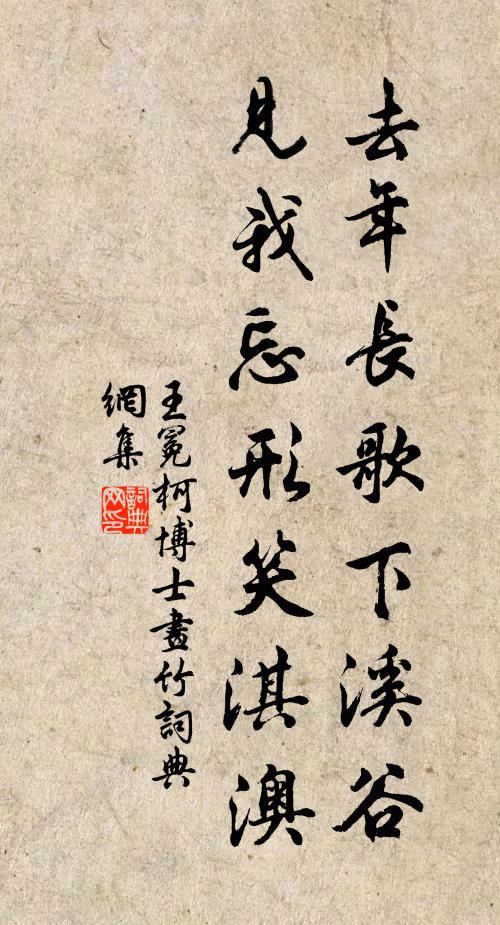 去年長歌下溪谷
見我忘形笑淇澳
王冕柯博士畫竹詞典
網集
詞典
网印